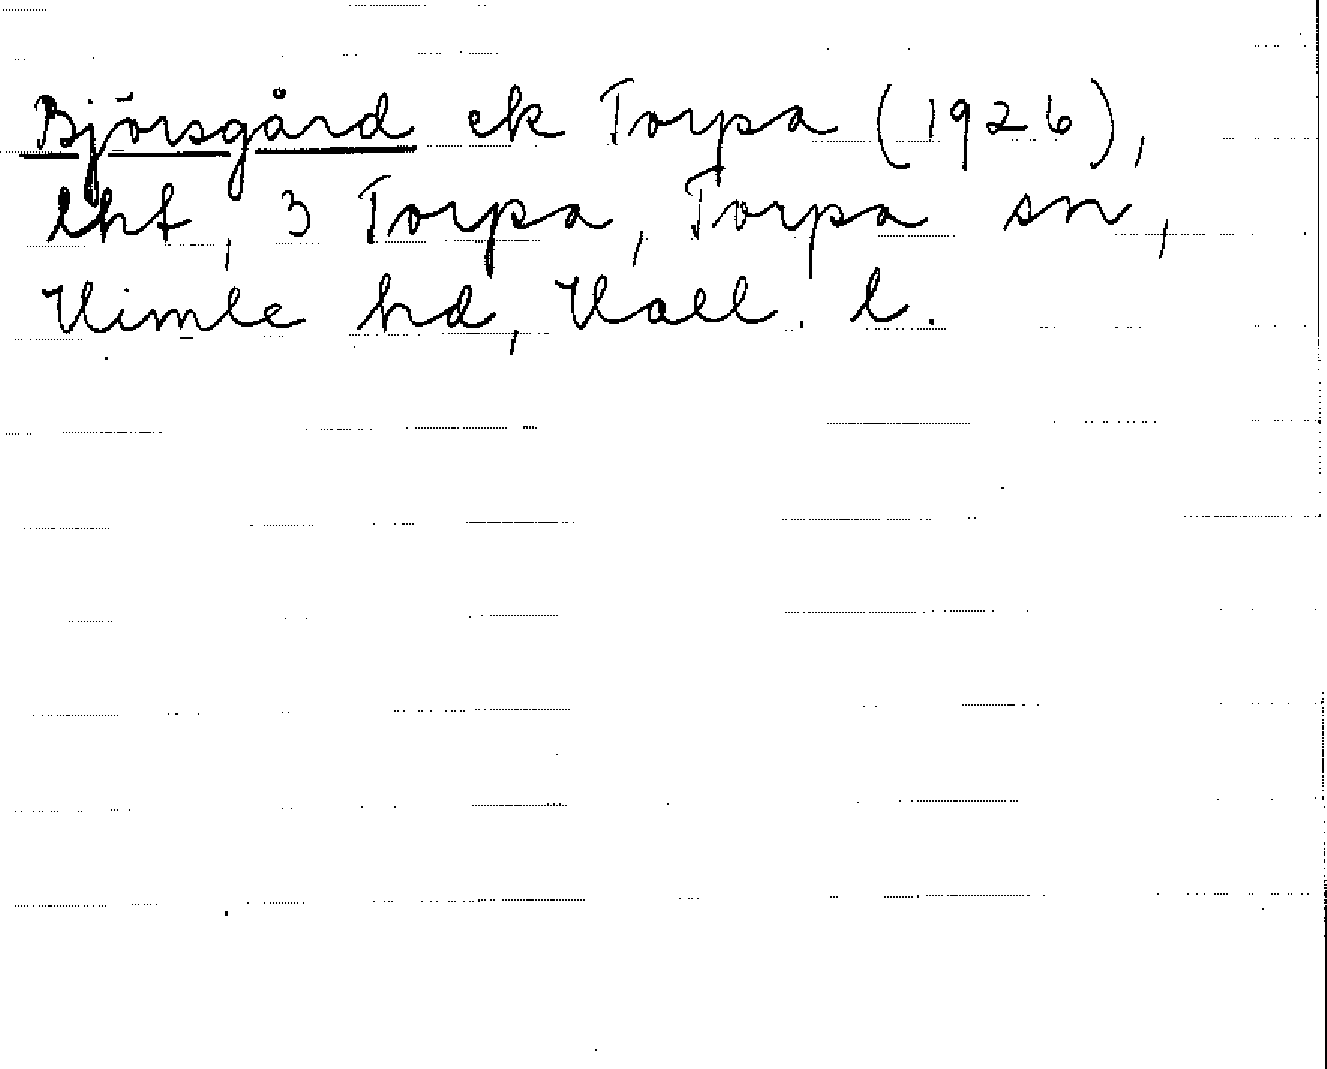 Björsgård ek Torpa (1926),
lht, 3 Torpa, Torpa sn,
Himle hd, Hall. l.